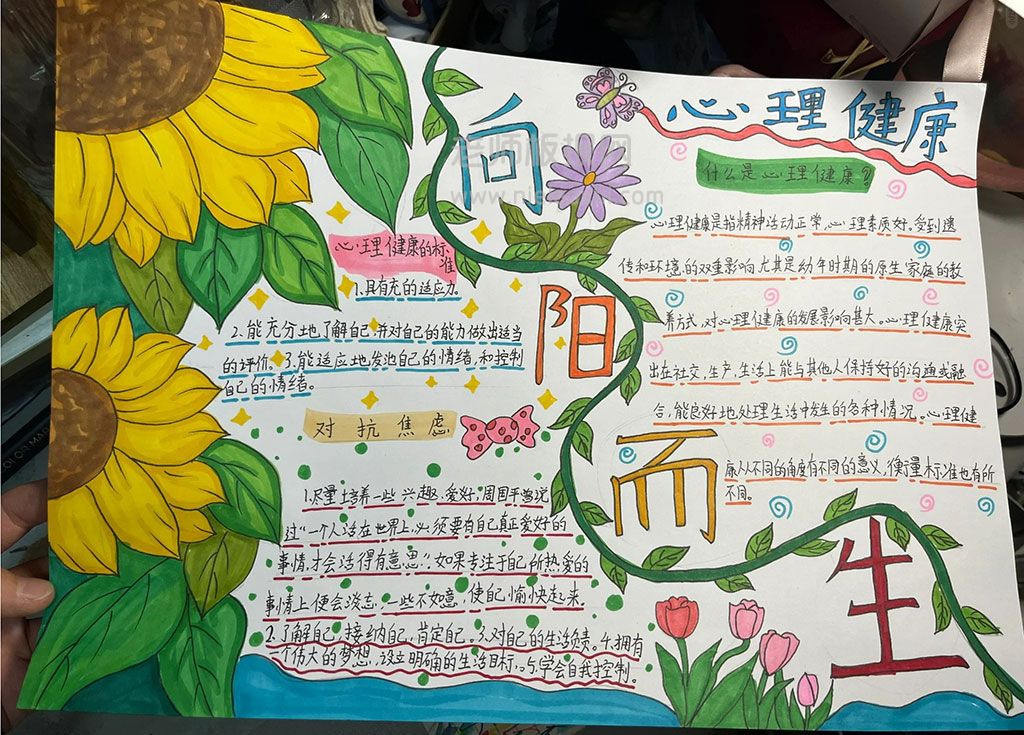 心理健康
向
阳
而
生
什么是心理健康?
心理健康是指精神活动正常,心理素质好,受到遗
传和环境,的双重影响,尤其是幼年时期的原生家庭的教
养方式,对心理健康的发展影响甚大。心理健康突
出在社交,生产,生活上能与其他人保持好的沟通或融
合,能良好地处理生活中发生的各种情况。心理健
康从不同的角度有不同的意义,衡量标准也有所
不同。
心理健康的标
准
1.具有充的适应力.
2.能充分地了解自己,并对自己的能力做出适当
的评价。3.能适应地发泄自己的情绪,和控制
自己的情绪。
对抗焦虑
1.尽量培养一些兴趣、爱好,周国平曾说
过“一个人活在世界上,必须要有自己真正爱好的
事情,才会活得有意思”.如果专注于自己所热爱的
事情上便会淡忘,一些不如意,使自己愉快起来.
2.了解自己,接纳自己,肯定自己。3.对自己的生活负责。4.拥有
一个伟大的梦想,设立明确的生活目标.5.学会自我控制.
老师板报网